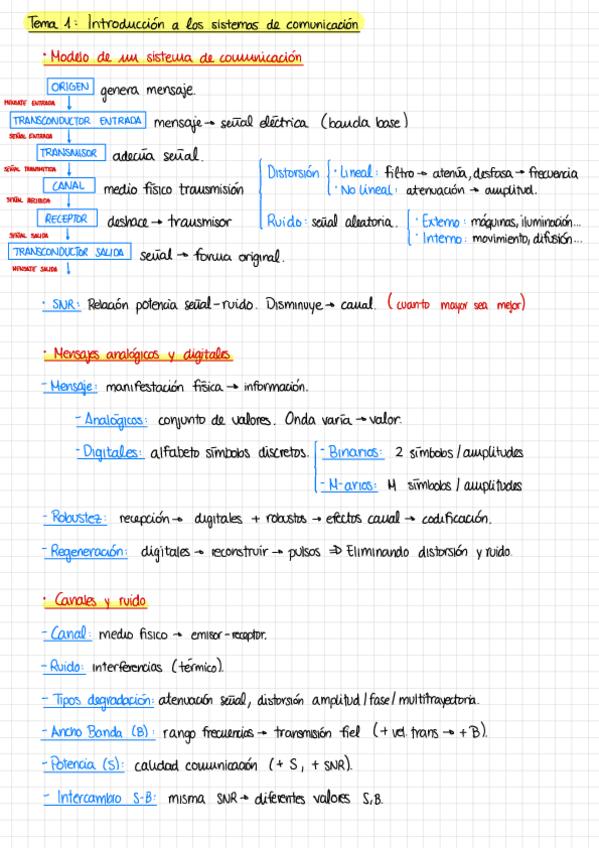 Tema 1: Introducción a los sistemas de comunicación
· Modelo de un sistema de comunicación
ORIGEN genera mensaje.
MENSAJE ENTRADA
TRANSCONDUCTOR ENTRADA mensaje → señal eléctrica (banda base)
SEÑAL ENTRADA
TRANSMISOR adecúa señal.
SEÑAL TRANSMITIDA
CANAL medio físico transmisión
Distorsión · Lineal: filtro → atenúa, desfasa → frecuencia
· No lineal: atenuación → amplitud.
SEÑAL RECIBIDA
RECEPTOR deshace → transmisor
Ruido: señal aleatoria. · Externo: máquinas, iluminación...
· Interno: movimiento, difusión...
SEÑAL SALIDA
TRANSCONDUCTOR SALIDA señal → forma original.
MENSAJE SALIDA
· SNR: Relación potencia señal-ruido. Disminuye → canal. (cuanto mayor sea mejor)
· Mensajes analógicos y digitales
- Mensaje: manifestación física → información.
- Analógicos: conjunto de valores. Onda varía → valor.
- Digitales: alfabeto símbolos discretos. - Binarios: 2 símbolos / amplitudes
- M-arios: M símbolos / amplitudes
- Robustez: recepción → digitales + robustos → efectos canal → codificación.
- Regeneración: digitales → reconstruir → pulsos ⇒ Eliminando distorsión y ruido.
· Canales y ruido
- Canal: medio físico → emisor-receptor.
- Ruido: interferencias (térmico).
- Tipos degradación: atenuación señal, distorsión amplitud / fase / multitrayectoria.
- Ancho Banda (B): rango frecuencias → transmisión fiel (+ vel. trans → + B).
- Potencia (S): calidad comunicación (+ S, + SNR).
- Intercambio S-B: misma SNR → diferentes valores S,B.